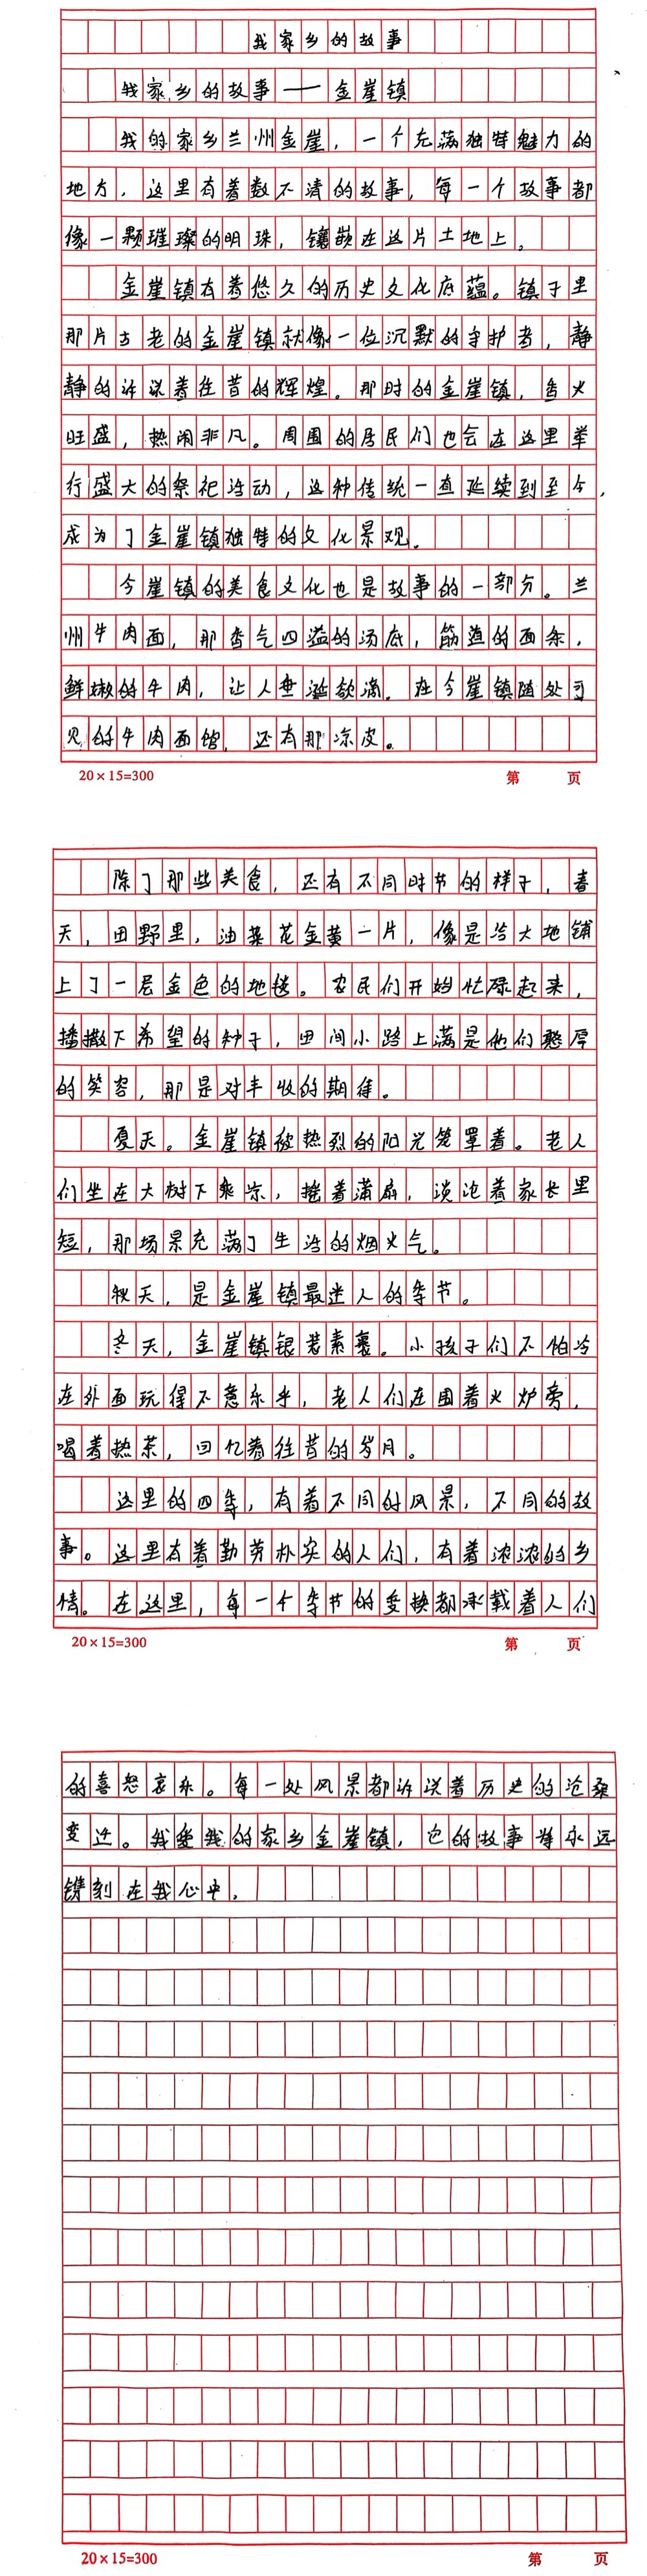 我家乡的故事
我家乡的故事——金崖镇
我的家乡兰州金崖，一个充满独特魅力的
地方，这里有着数不清的故事，每一个故事都
像一颗璀璨的明珠，镶嵌在这片土地上。
金崖镇有着悠久的历史文化底蕴。镇子里
那片古老的金崖镇就像一位沉默的守护者，静
静的诉说着往昔的辉煌。那时的金崖镇，香火
旺盛，热闹非凡。周围的居民们也会在这里举
行盛大的祭祀活动，这种传统一直延续到至今，
成为了金崖镇独特的文化景观。
今崖镇的美食文化也是故事的一部分。兰
州牛肉面，那香气四溢的汤底，筋道的面条，
鲜嫩的牛肉，让人垂涎欲滴。在今崖镇随处可
见的牛肉面馆，还有那凉皮。
20×15=300 第 页
除了那些美食，还有不同时节的样子，春
天，田野里，油菜花金黄一片，像是给大地铺
上了一层金色的地毯。农民们开始忙碌起来，
播撒下希望的种子，田间小路上满是他们憨厚
的笑容，那是对丰收的期待。
夏天。金崖镇被热烈的阳光笼罩着。老人
们坐在大树下乘凉，摇着蒲扇，谈论着家长里
短，那场景充满了生活的烟火气。
秋天，是金崖镇最迷人的季节。
冬天，金崖镇银装素裹。小孩子们不怕冷
在外面玩得不意乐乎，老人们在围着火炉旁，
喝着热茶，回忆着往昔的岁月。
这里的四季，有着不同的风景，不同的故
事。这里有着勤劳朴实的人们，有着浓浓的乡
情。在这里，每一个季节的变换都承载着人们
20×15=300 第 页
的喜怒哀乐。每一处风景都诉说着历史的沧桑
变迁。我爱我的家乡金崖镇，它的故事将永远
镌刻在我心中。
20×15=300 第 页